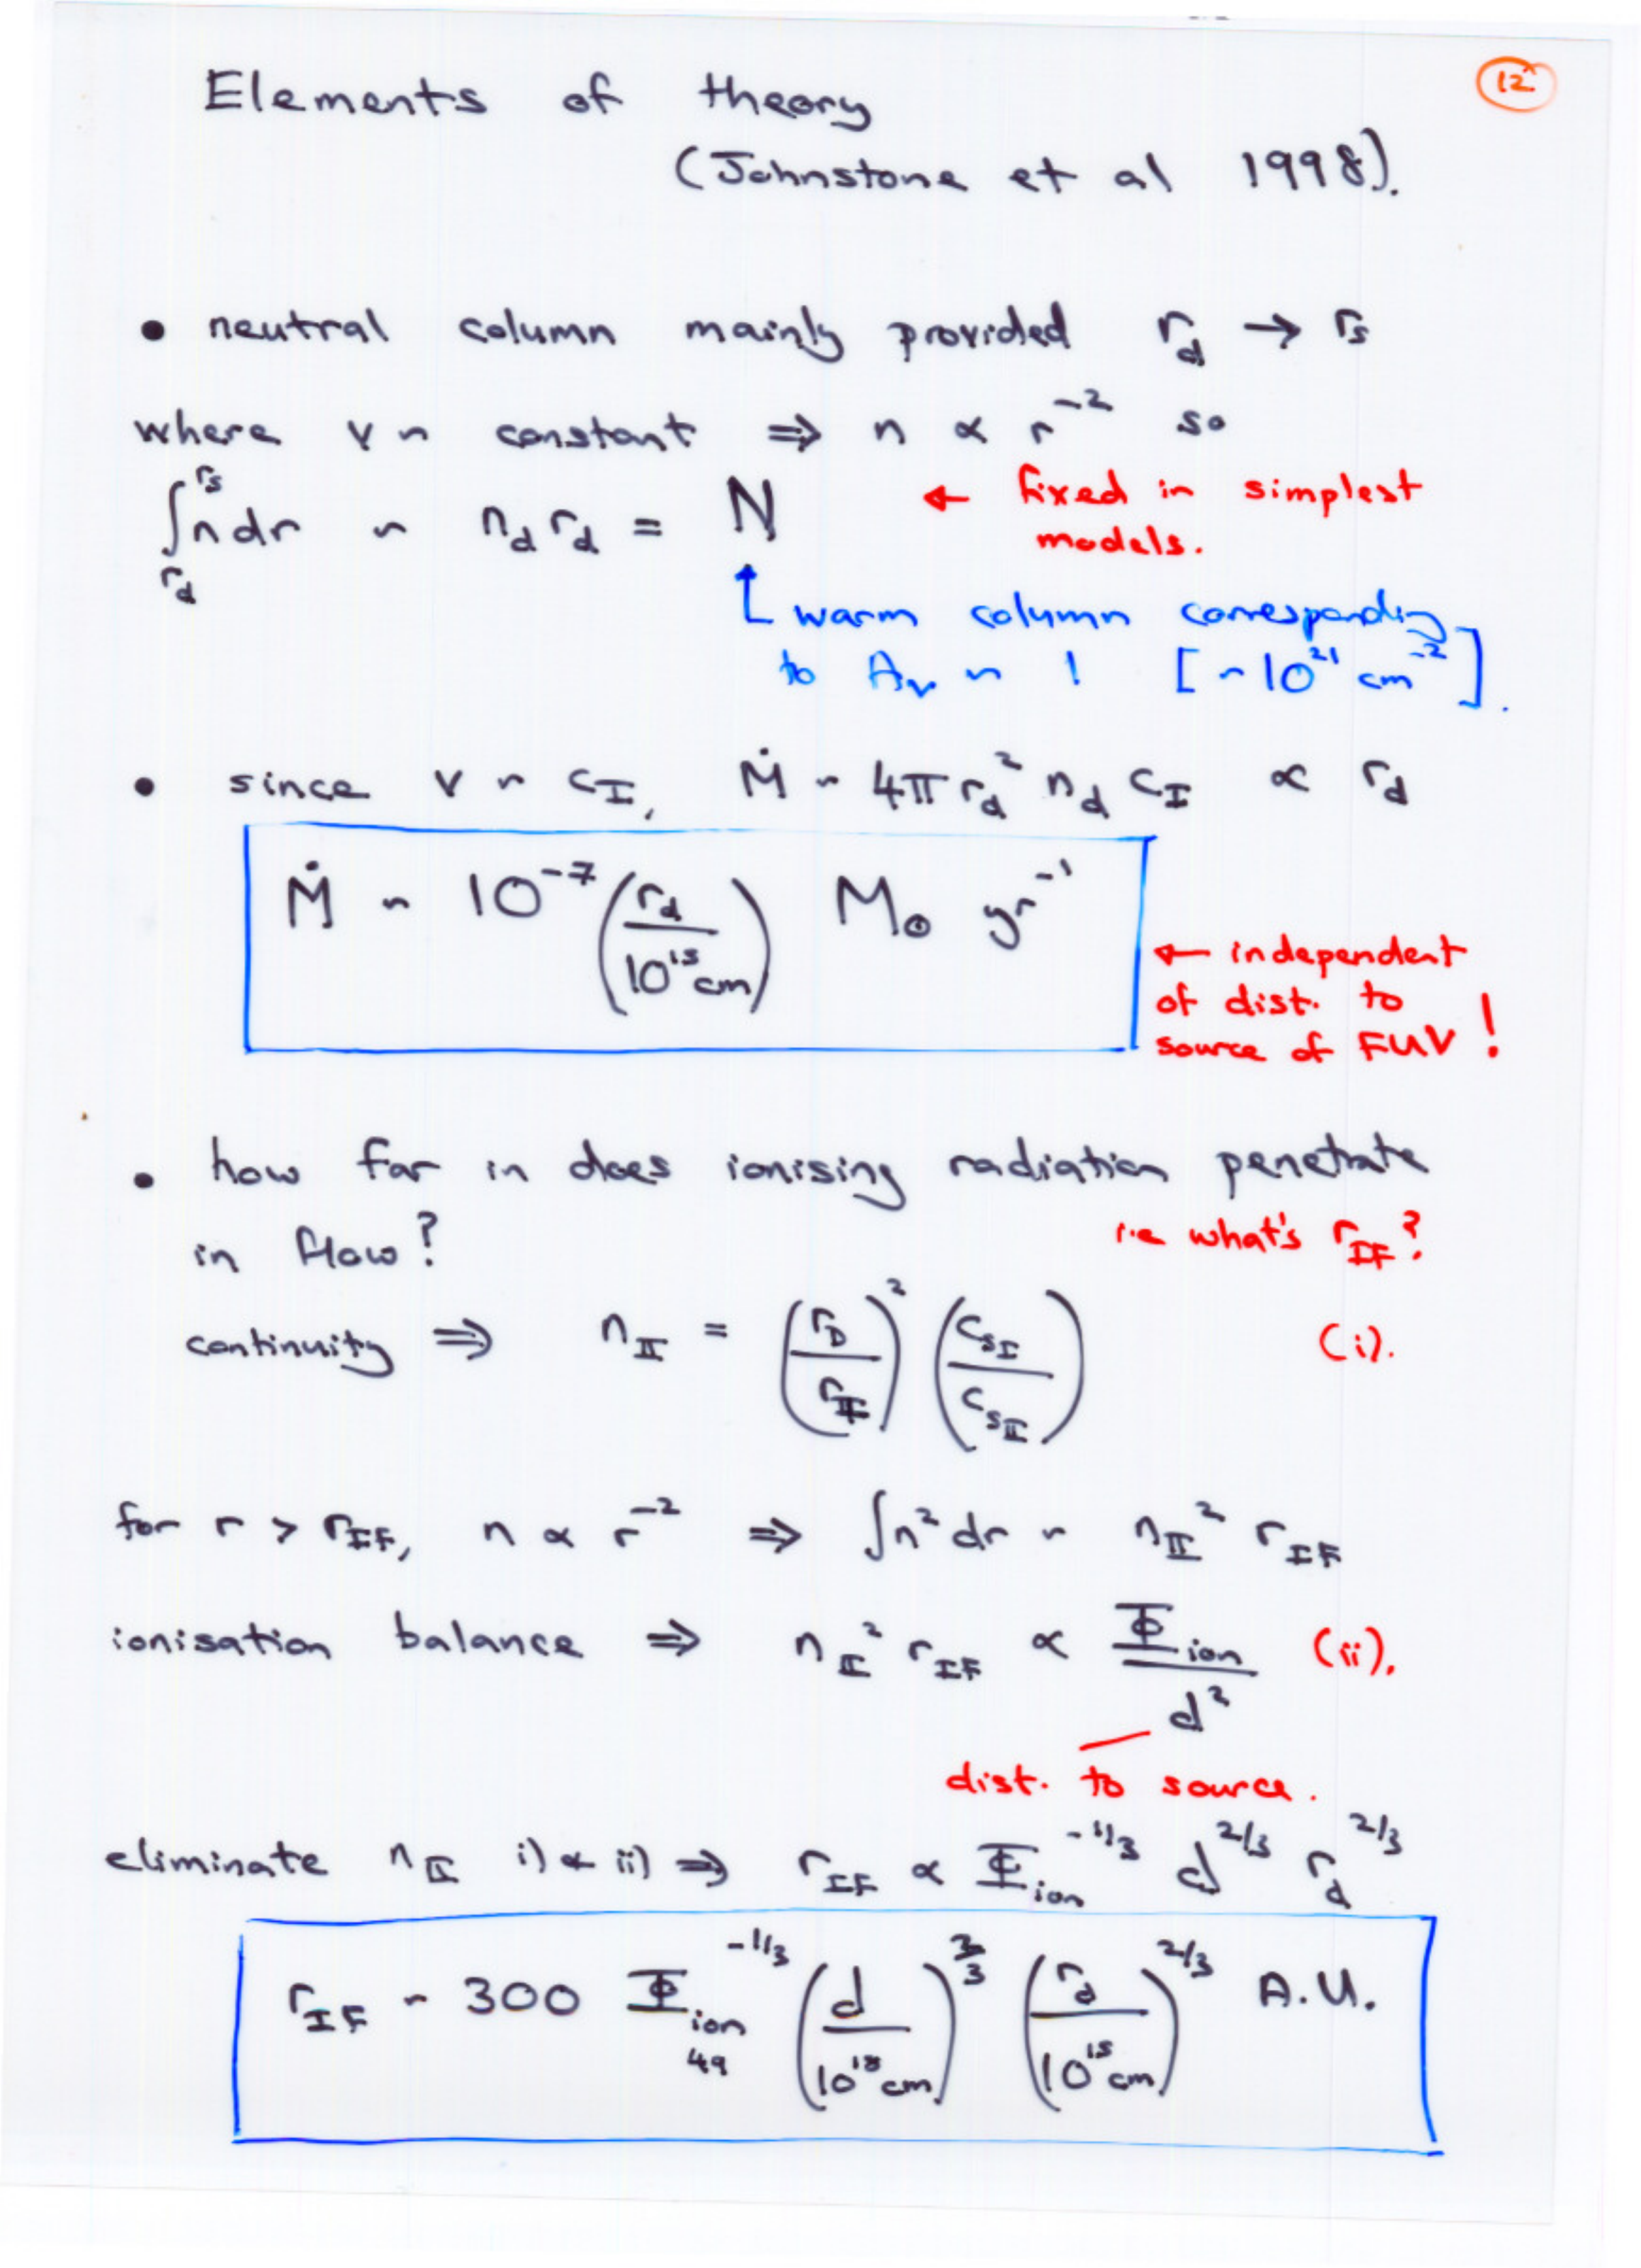 Elements of theory
12
(Johnstone et al 1998).
• neutral column mainly provided r_d → r_s
where v ~ constant ⇒ n ∝ r^{-2} so
∫_{r_d}^{r_s} n dr ~ n_d r_d = N ← fixed in simplest
models.
↑ warm column corresponding
to A_v ~ 1 [~10^{21} cm^{-2}].
• since v ~ c_I, Ṁ ~ 4π r_d^2 n_d c_I ∝ r_d
Ṁ ~ 10^{-7} (r_d / 10^{15} cm) M_⊙ yr^{-1}
← independent
of dist. to
source of FUV !
• how far in does ionising radiation penetrate
in flow? i.e what's r_{IF}?
continuity ⇒ n_{II} = (r_D / r_{IF})^2 (c_{sI} / c_{sII}) (i).
for r > r_{IF}, n ∝ r^{-2} ⇒ ∫n^2 dr ~ n_{II}^2 r_{IF}
ionisation balance ⇒ n_{II}^2 r_{IF} ∝ Φ_{ion} / d^2 (ii).
dist. to source.
eliminate n_{II} i) & ii) ⇒ r_{IF} ∝ Φ_{ion}^{-1/3} d^{2/3} r_d^{2/3}
r_{IF} ~ 300 Φ_{ion 49}^{-1/3} (d / 10^{18} cm)^{2/3} (r_d / 10^{15} cm)^{2/3} A.U.